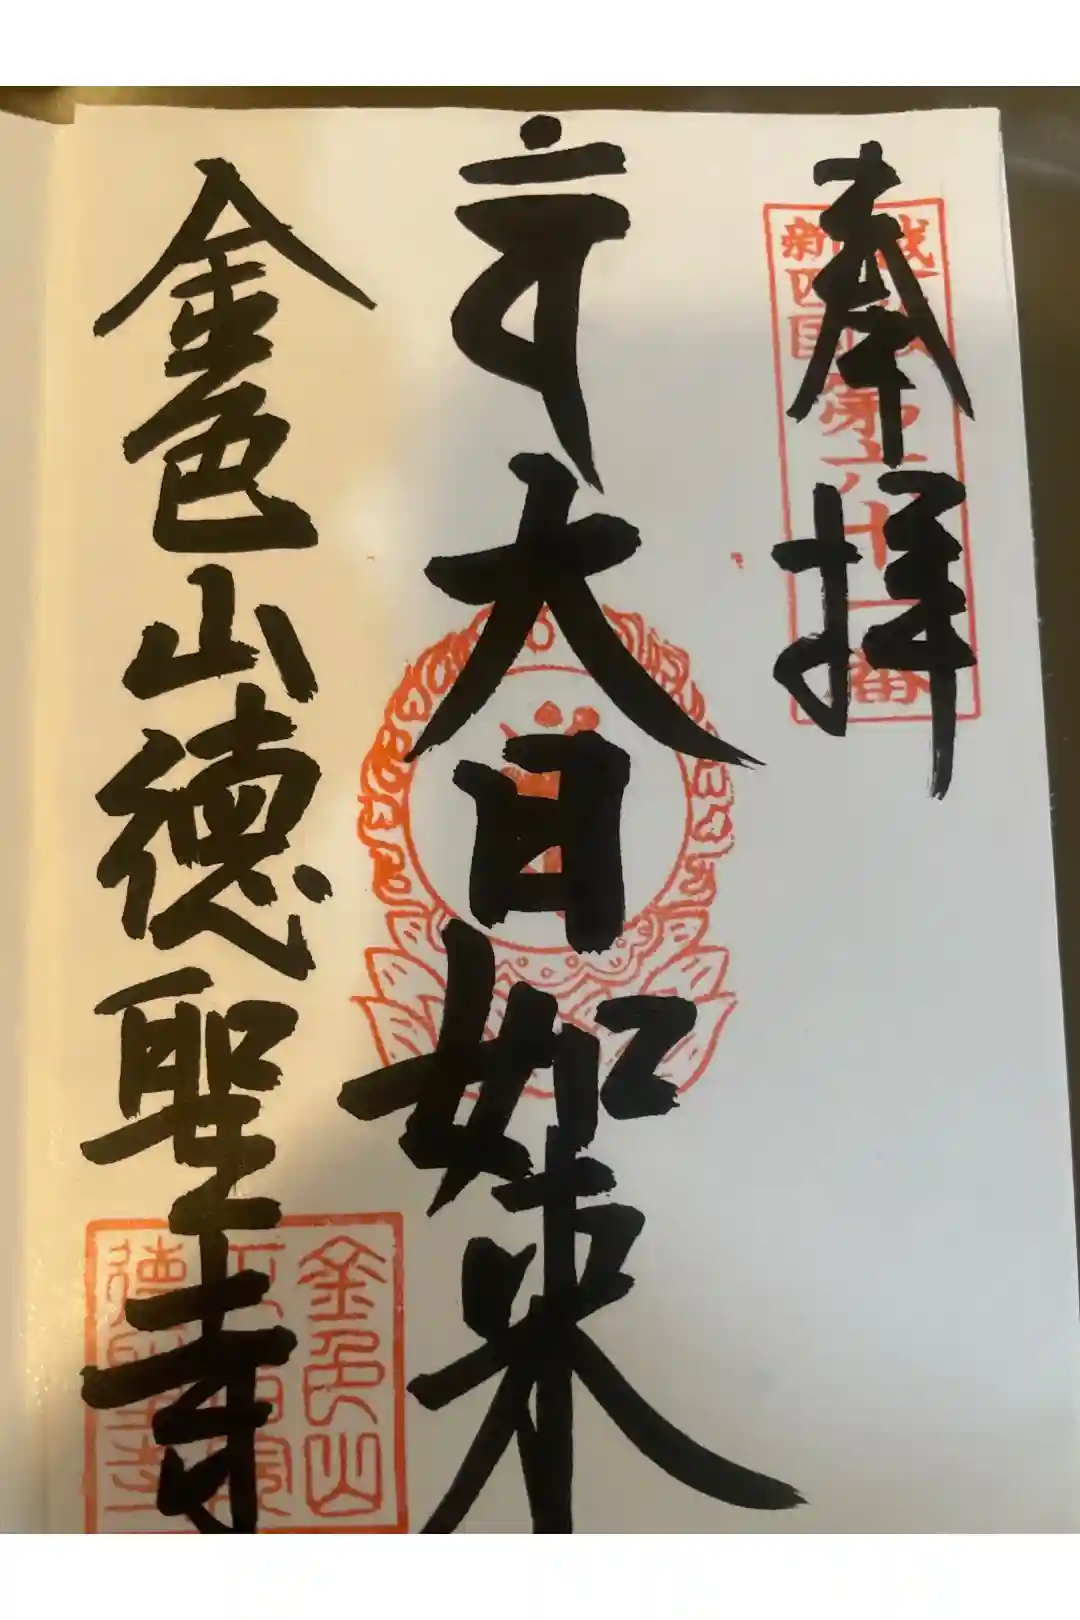 奉拝
新四国
大日如来
金色山徳聖寺
金色山